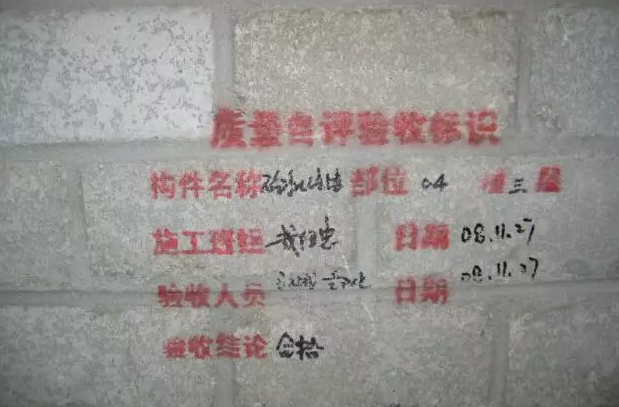 质量自评验收标识
构件名称 部位 04 幢 三 层
施工班组 日期 08.11.27
验收人员 日期 08.11.27
验收结论 合格